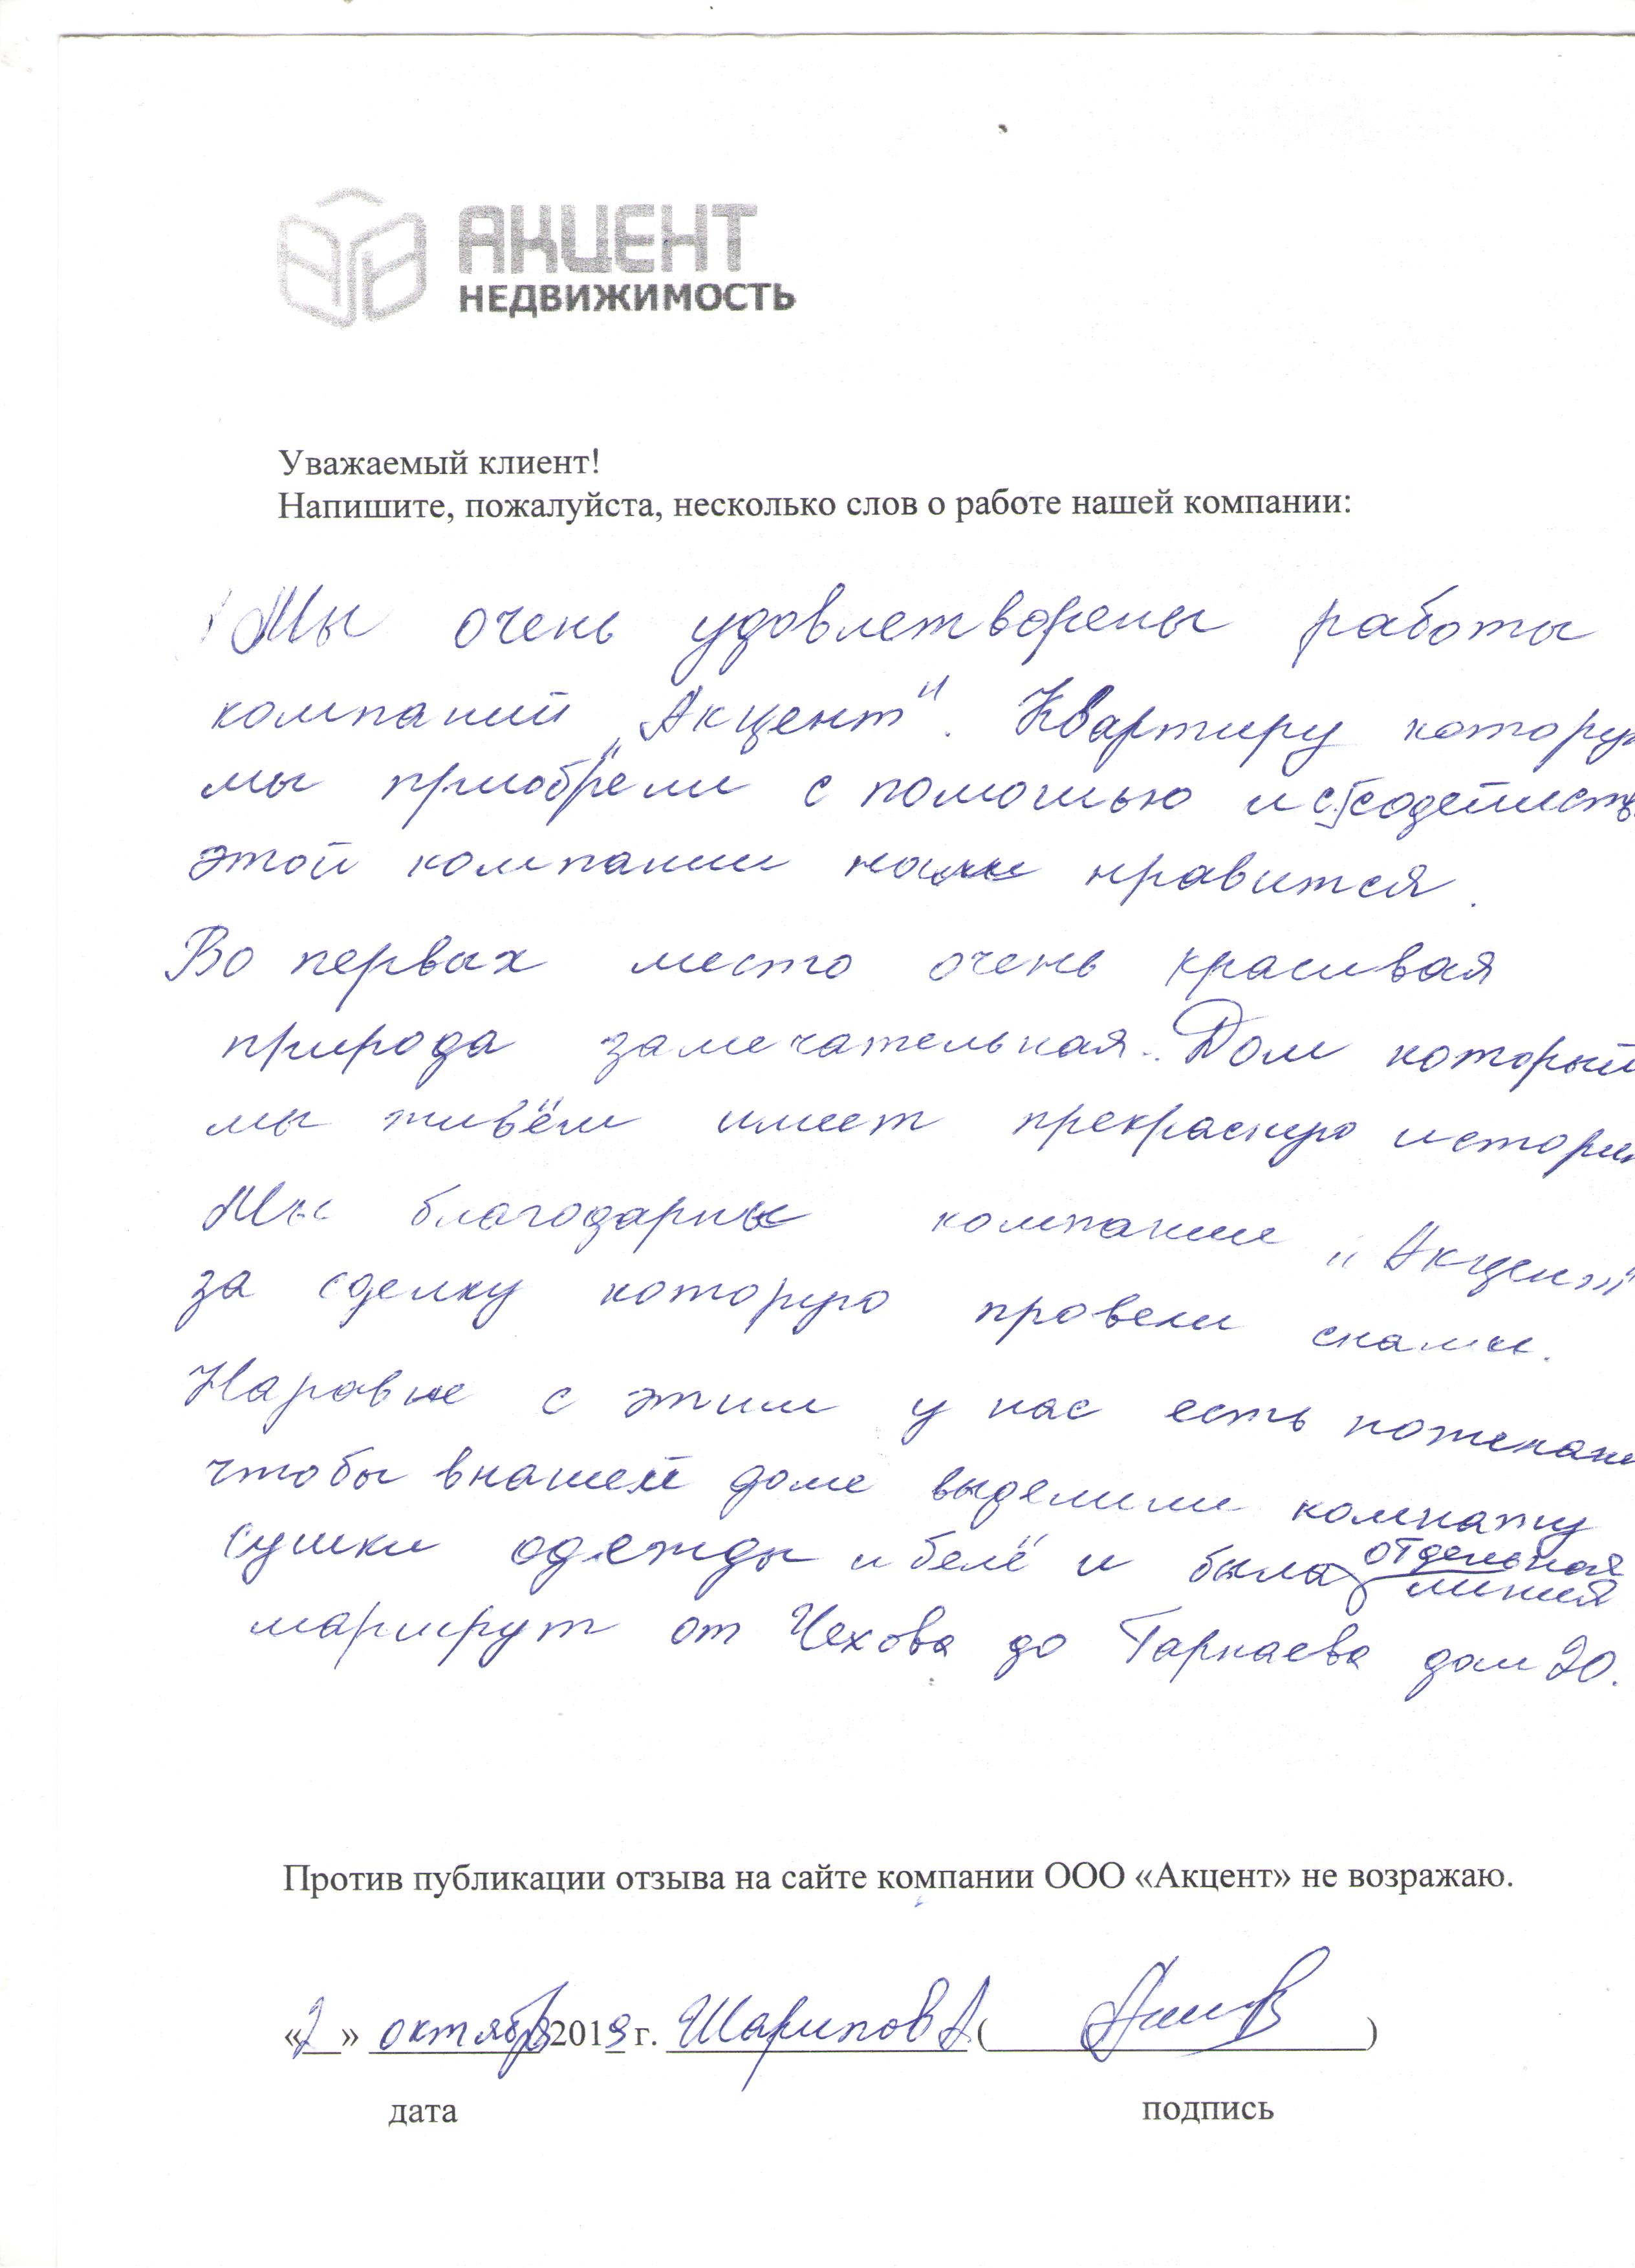 АКЦЕНТ
НЕДВИЖИМОСТЬ
Уважаемый клиент!
Напишите, пожалуйста, несколько слов о работе нашей компании:
Мы очень удовлетворены работы
компаний „Акцент". Квартиру котору
мы приобрёли с помошью и содейств
этой компании нам нравится.
Во первых место очень красивая
природа замечательная. Дом который
мы живём имеет прекрасную истори
Мы благодарны компание "Акцент"
за сделку которую провели снами.
Наравне с этим у нас есть пожелан
чтобы внашей доме выделили комнату
сушки одежды и белё и была отдельная линия
маршрут от Чехова до Гарнаева дом 20.
Против публикации отзыва на сайте компании ООО «Акцент» не возражаю.
«2» октября 2019 г. Шарипов А ( )
дата подпись